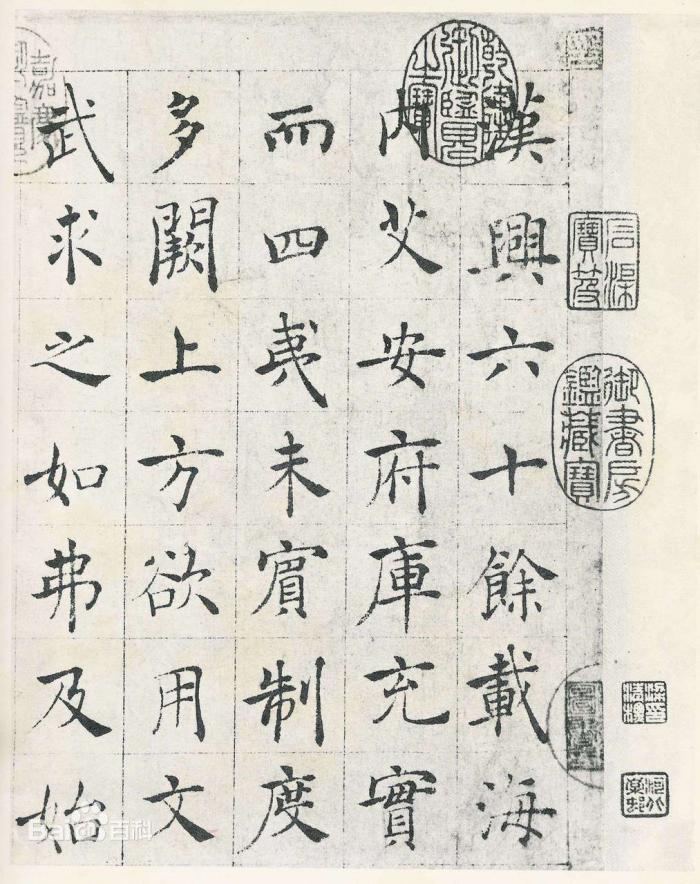 漢興六十餘載海
内艾安府庫充實
而四夷未賓制度
多闕上方欲用文
武求之如弗及始
乾隆御覽之寶
御書房鑑藏寶
嘉慶御覽之寶
Baidu百科